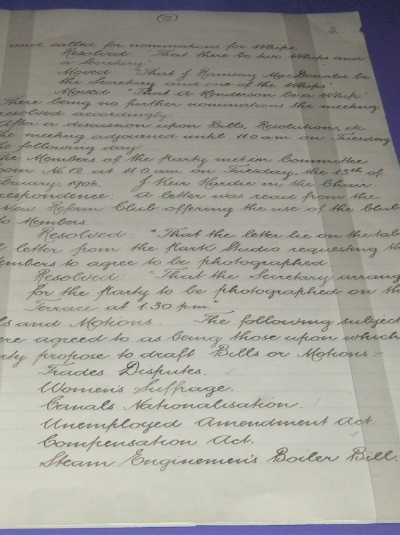 2.
and called for nominations for Whips.
Resolved: "That there be two Whips and
a Secretary"
Moved "That J Ramsay MacDonald be
the Secretary and one of the Whips"
Moved "That A Henderson be a Whip"
There being no further nominations the meeting
resolved accordingly.
After a discussion upon Bills, Resolutions, etc
the meeting adjourned until 11.0 am on Tuesday
the following day.
The Members of the Party met in Committee
Room No 12 at 11.0 am on Tuesday, the 13th of
February, 1906. J Keir Hardie in the Chair
respondence a letter was read from the
Reform Club offering the use of the Club
to Members.
Resolved "That the letter lie on the tab
A letter from the Park Studio requesting th
embers to agree to be photographed
Resolved: "That the Secretary arrang
for the Party to be photographed on th
Terrace at 1.30 p.m."
ls and Motions. The following subject
ere agreed to as being those upon which
rty propose to draft Bills or Motions:-
Trades Disputes.
Women's Suffrage.
Canals Nationalisation.
Unemployed Amendment Act
Compensation Act.
Steam Enginemen's Boiler Bill.